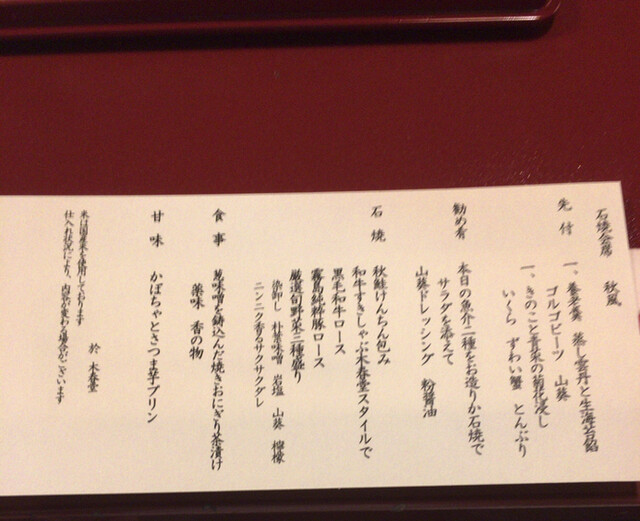 石焼会席　秋風
先付　一、養老羹　蒸し雲丹と生海苔餡
ゴルゴビーツ　山葵
一、きのこと青菜の菊花浸し
いくら　ずわい蟹　とんぶり
勧め肴　本日の魚介二種をお造りか石焼で
サラダを添えて
山葵ドレッシング　粉醤油
石焼　秋鮭けんちん包み
和牛すきしゃぶ木春堂スタイルで
黒毛和牛ロース
霧島純粋豚ロース
厳選旬野菜三種盛り
染卸し　朴葉味噌　岩塩　山葵　檸檬
ニンニク香るサクサクダレ
食事　葱味噌を鋳込んだ焼きおにぎり茶漬け
薬味　香の物
甘味　かぼちゃとさつま芋プリン
於　木春堂
米は国産米を使用しております
仕入れ状況により、内容が変わる場合がございます